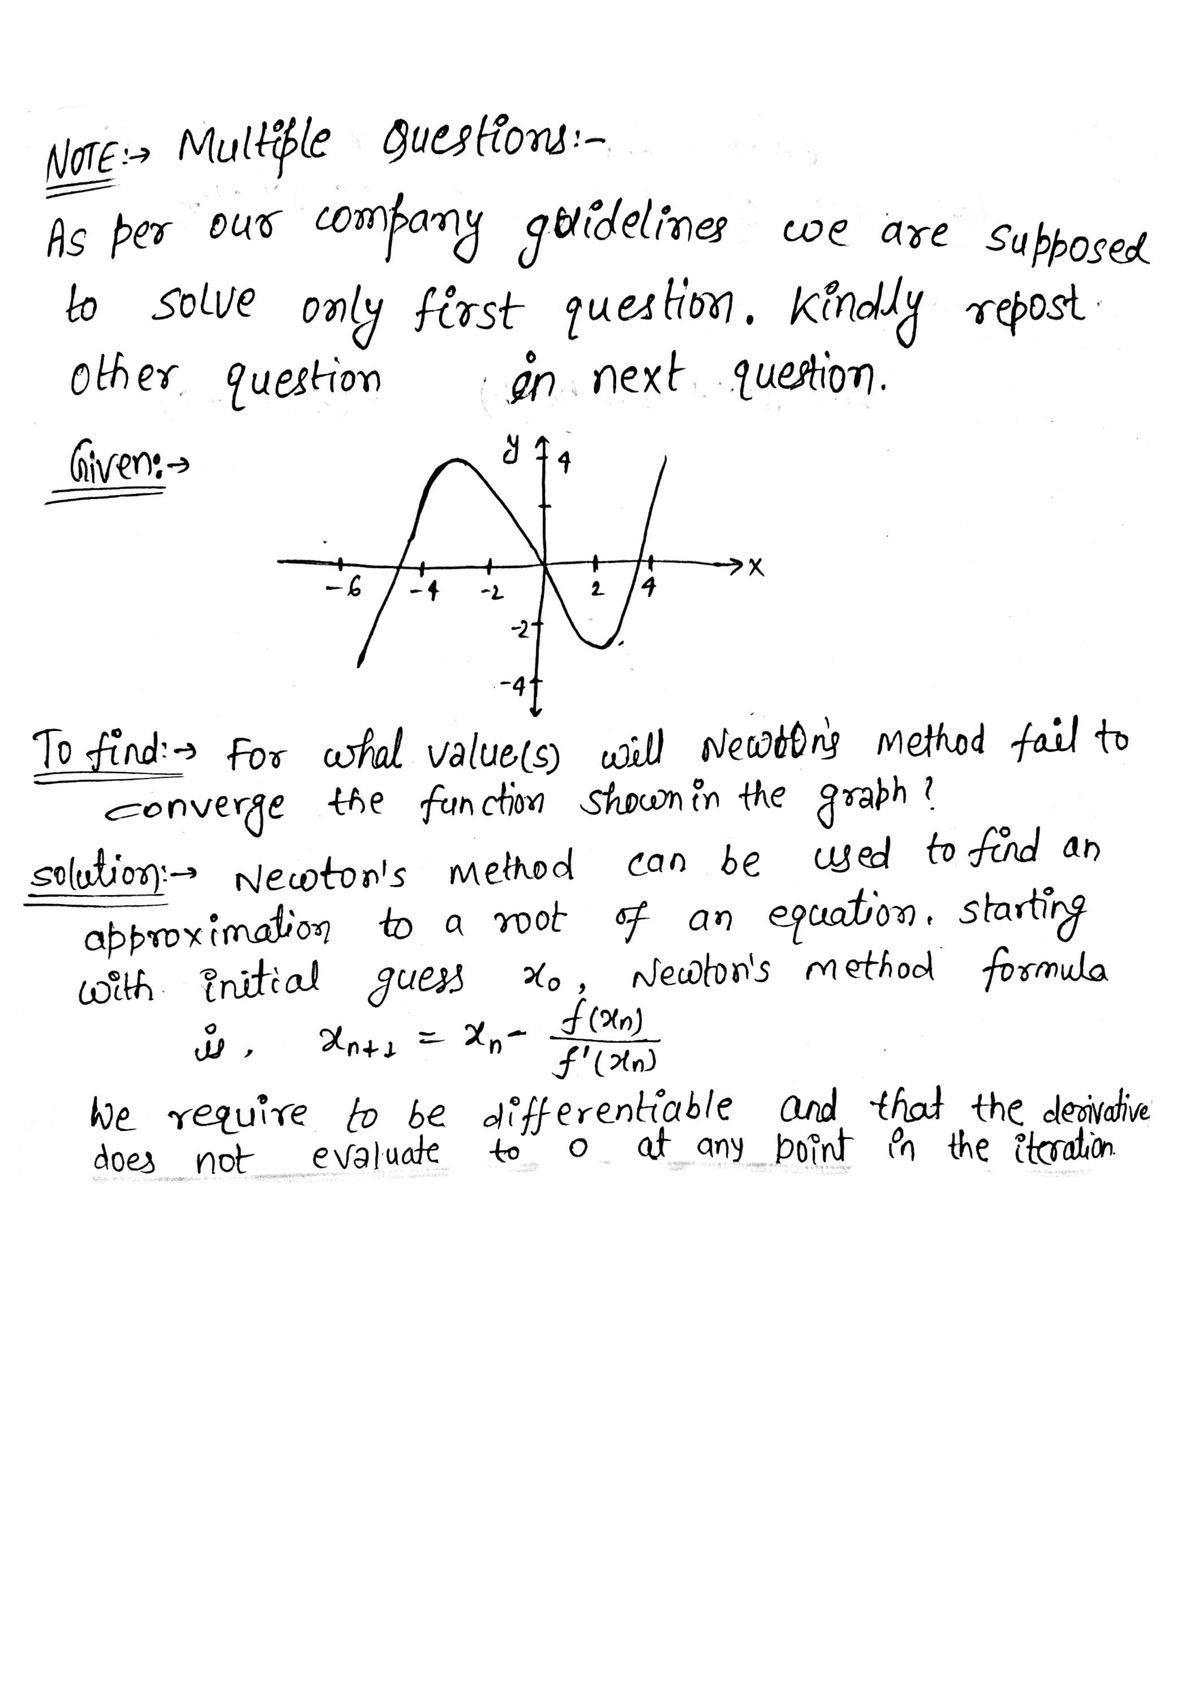 NOTE:→ Multiple Questions:-
As per our company guidelines we are supposed
to solve only first question. Kindly repost
other question in next question.
Given:→
y 4
-6 -4 -2 2 4 x
-2
-4
To find:→ For what value(s) will Newton's method fail to
converge the function shown in the graph?
solution:→ Newton's method can be used to find an
approximation to a root of an equation. starting
with initial guess x₀, Newton's method formula
is, xₙ₊₁ = xₙ - f(xₙ)/f'(xₙ)
We require to be differentiable and that the derivative
does not evaluate to 0 at any point in the iteration.